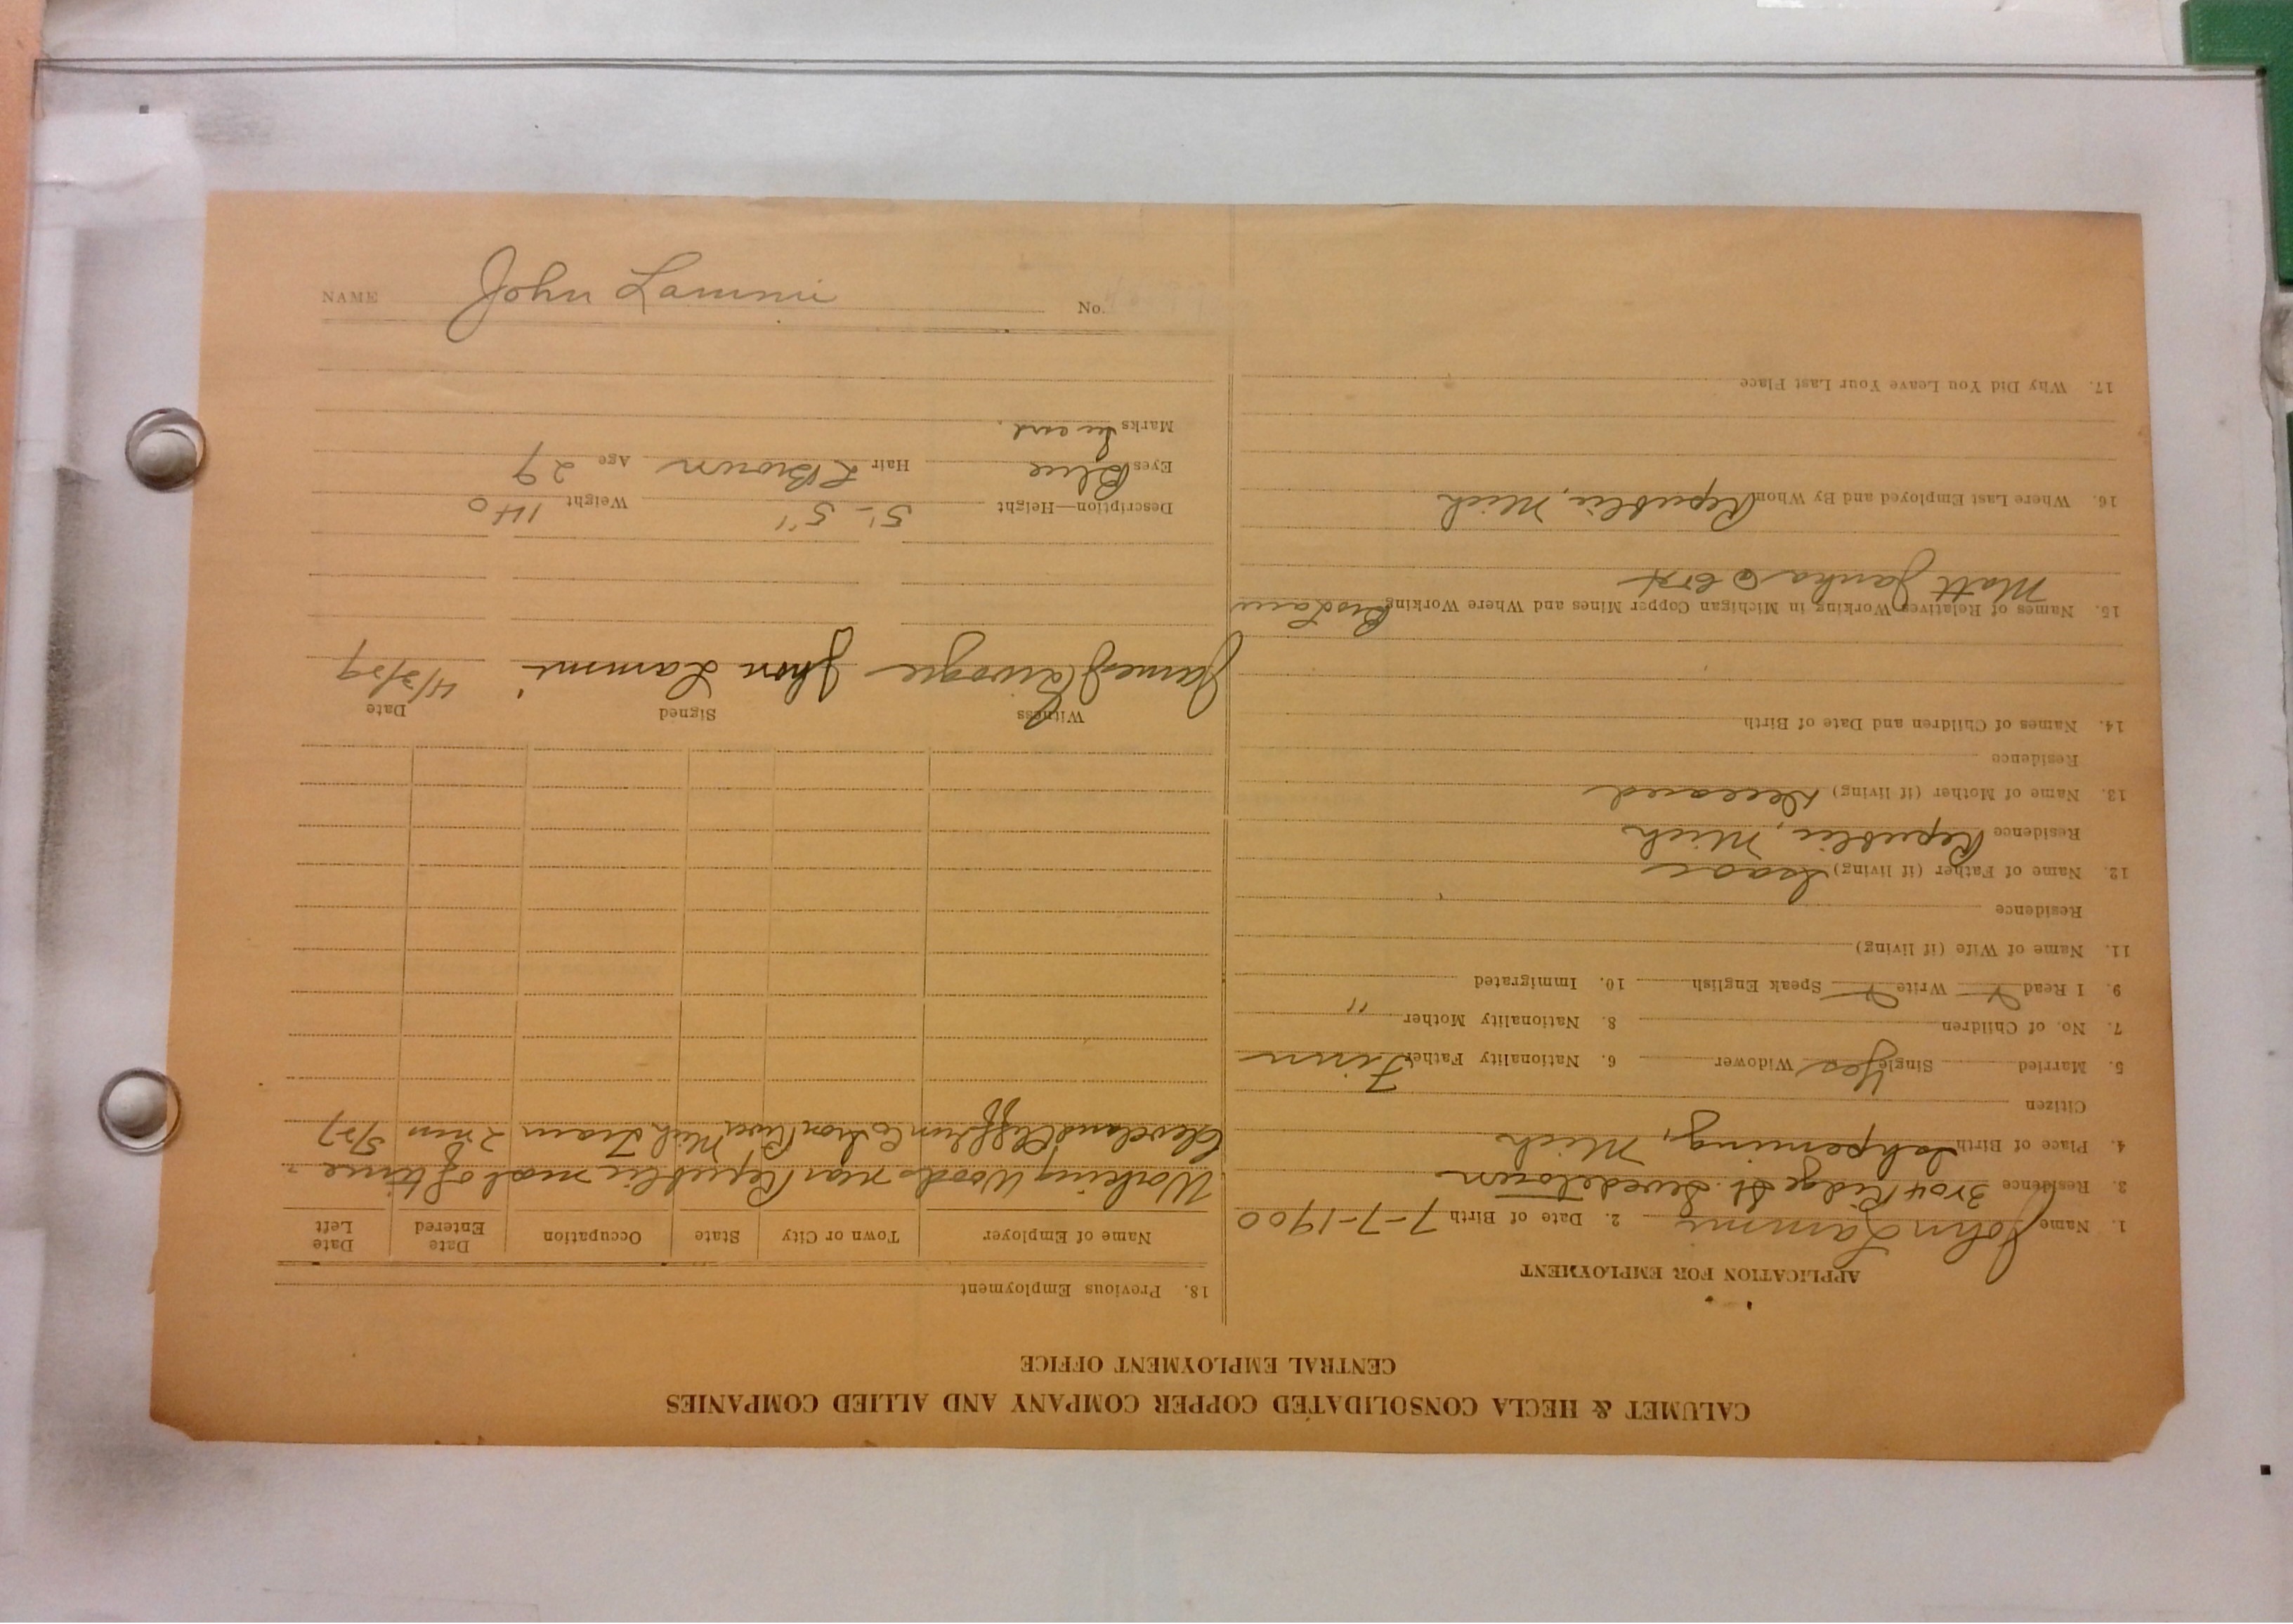 CALUMET & HECLA CONSOLIDATED COPPER COMPANY AND ALLIED COMPANIES
CENTRAL EMPLOYMENT OFFICE
APPLICATION FOR EMPLOYMENT
1. Name John Lammi 2. Date of Birth 7-7-1900
3. Residence 3104 Ridge St. Swedetown
4. Place of Birth Ishpeming, Mich
Citizen
5. Married Single Yes Widower 6. Nationality Father Finn
7. No. of Children 8. Nationality Mother "
9. I Read Write Speak English 10. Immigrated
11. Name of Wife (if living)
Residence
12. Name of Father (if living) Isaac
Residence Republic, Mich
13. Name of Mother (if living) Deceased
Residence
14. Names of Children and Date of Birth
15. Names of Relatives Working in Michigan Copper Mines and Where Working Bro Law
Matt Janka @
16. Where Last Employed and By Whom Republic, Mich
17. Why Did You Leave Your Last Place
18. Previous Employment
Name of Employer Town or City State Occupation Date Entered Date Left
Working Woods near Republic most of time.
Cleveland Cliff Iron Co Iron River Mich Tram 2 mos 5/27
Witness Signed Date
James Jhon Lammi 4/3/29
Description—Height 5'-5" Weight 140
Eyes Blue Hair L Brown Age 29
Marks See card.
NAME John Lammi No.